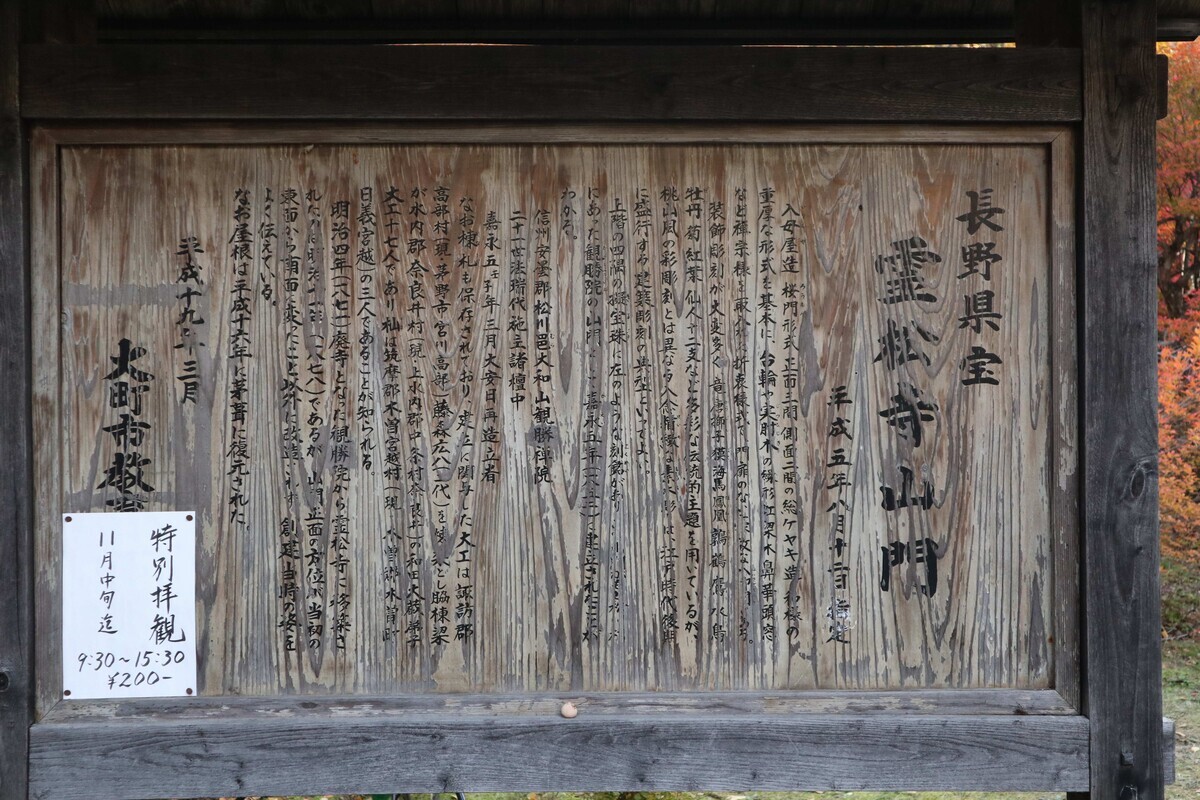 長野県宝
霊松寺山門
平成五年八月十二日 指定
入母屋造 桜門形式 正面三間 側面二間の総ケヤキ造 初極の
重厚な形式を基本に、台輪や実肘木の繰形 江梁木鼻 華頭窓
など禅宗様を取入れた折衷様式で 門扉の
装飾彫刻が大変多く 竜 唐獅子 獏 海馬 鳳凰 鶴 鷹 水鳥
牡丹 筍 紅葉 仙人 十二支など多彩な伝統的主題を用いているが、
桃山風の彩彫刻とは異なる 江戸時代後期
に盛行する建築彫刻の典型といってよい
上階の四隅の擬宝珠に左のような刻銘があり
にあった観勝院の山門として嘉永五年(一八五二)に建立されたことが
わかる。
信州安曇郡松川邑大和山観勝禅院
二十一世法瑞代 施主諸檀中
嘉永五壬子年三月大安日再造立者
なお棟札も保存されており 建立に関与した大工は諏訪郡
高部村(現・茅野市宮川高部)藤森広八(二代)を棟梁とし脇棟梁
が水内郡奈良井村(現・上水内郡中条村奈良井)の和田大蔵 弟子
大工十七人であり 杣は筑摩郡木曽宮越村(現 木曽郡木曽町
日義宮越)の三人であることが知られる
明治四年(一八七一)廃寺となった観勝院から霊松寺に移築さ
れたのは明治十一年(一八七八)であるが 山門正面の方位が当初の
東面から南面に変ったこと以外に改造はなく 創建当時の姿を
よく伝えている。
なお屋根は平成十六年に茅葺に復元された。
平成十九年三月
大町市教
特別拝観
11月中旬迄
9:30〜15:30
¥200-